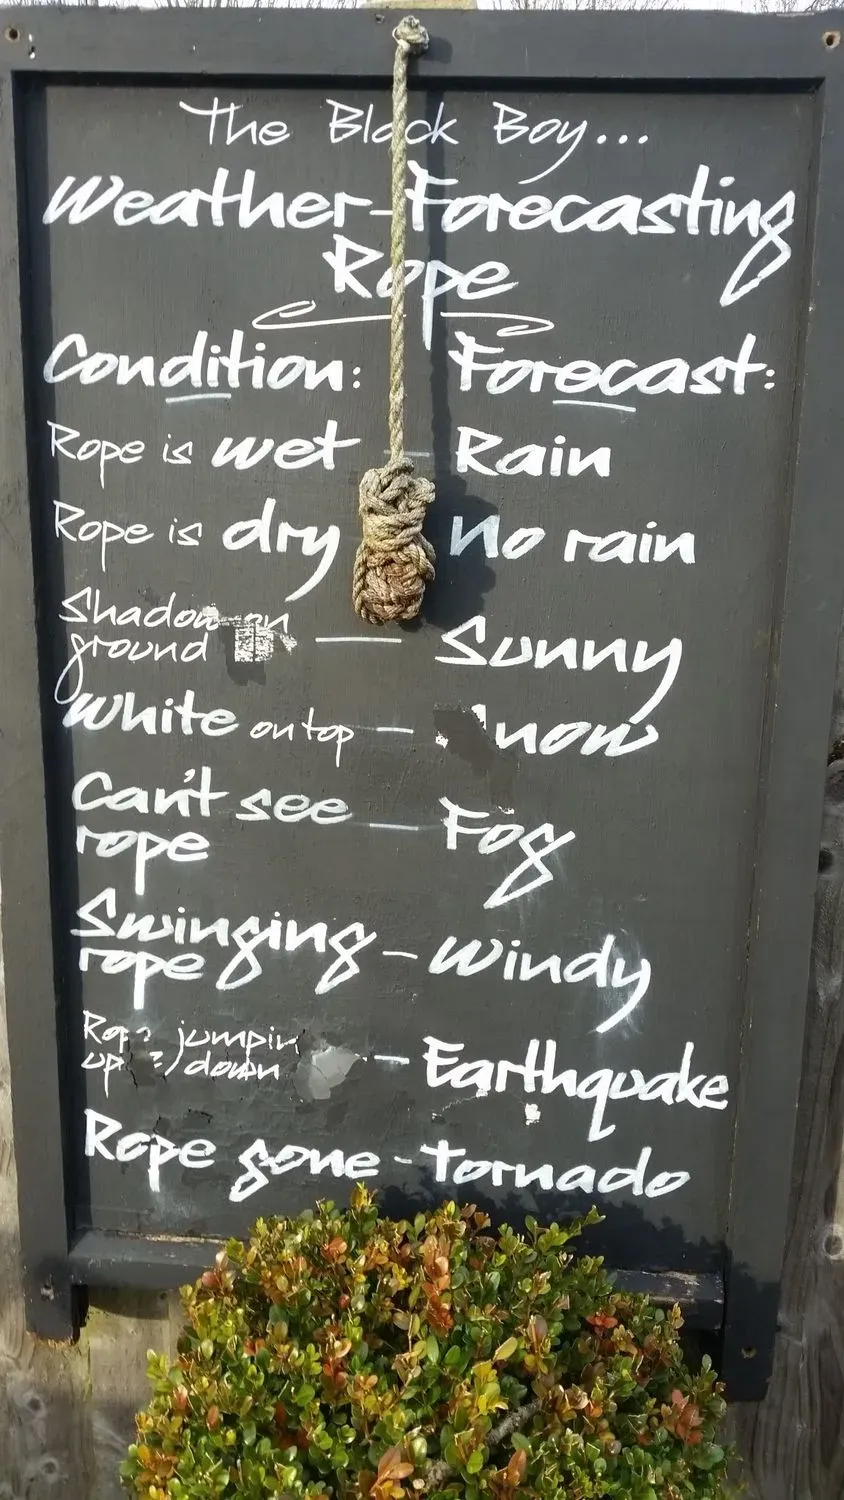 The Black Boy...
Weather-Forecasting
Rope
Condition: Forecast:
Rope is wet - Rain
Rope is dry No rain
Shadow on
ground — Sunny
White on top -
Can't see
rope - Fog
Swinging
rope - Windy
jumpin
up down - Earthquake
Rope gone - Tornado